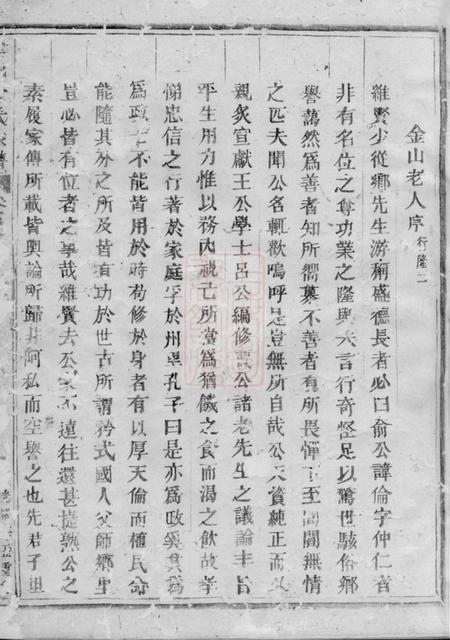 金山老人序 行隆二
維賢少從鄉先生游稱盛德長者必曰俞公諱倫字仲仁者
非有名位之尊功業之隆與夫言行奇堅足以驚世駭俗鄉
譽藹然為善者知所嚮慕不善者有所畏憚下至閭閻無情
之匹夫聞公名輒歡嗚呼是豈無所自哉公天資純正而又
親炙宣獻王公學士呂公編修公諸老先生之議論
平生用力惟以務內視己所當為猶饑之食而渴之飲故孝
悌忠信之行著於家庭孚於州里孔子曰是亦為政奚其為
為政士不能皆用於時苟修於身者有以厚天倫而植民命
能隨其分之所及皆有功於世古所謂矜式國人父師鄉里
豈必皆有位者之事哉維賢去公家不遠往還甚提熟公之
素履家傳所載皆輿論所歸非阿私而空譽之也先君子